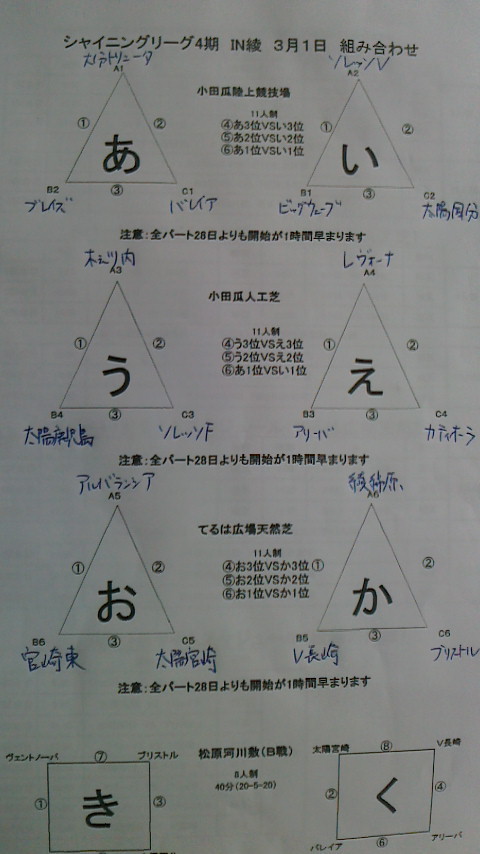 シャイニングリーグ4期 IN綾 3月1日 組み合わせ
大分トリニータ
ソレッソV
A1
A2
小田瓜陸上競技場
11人制
④あ3位VSい3位
⑤あ2位VSい2位
⑥あ1位VSい1位
① ② ① ②
あ い
B2 ③ C1 B1 ③ C2
ブレイズ バレイア ビッグウェーブ 太陽国分
注意:全パート28日よりも開始が1時間早まります
レヴォーナ
A3 A4
小田瓜人工芝
11人制
④う3位VSえ3位
⑤う2位VSえ2位
⑥あ1位VSい1位
① ② ① ②
う え
B4 ③ C3 B3 ③ C4
太陽鹿児島 ソレッソF アリーバ カティオーラ
注意:全パート28日よりも開始が1時間早まります
アルバランシア
A5 A6
てるは広場天然芝
11人制
④お3位VSか3位
⑤お2位VSか2位
⑥お1位VSか1位
① ② ① ②
お か
B6 ③ C5 B5 ③ C6
宮崎東 太陽宮崎 V長崎 ブリストル
注意:全パート28日よりも開始が1時間早まります
ヴェントノーバ ⑦ ブリストル 松原河川敷(B戦) 太陽宮崎 ⑧ V長崎
8人制
40分(20-5-20)
① き ③ ② く ④
バレイア ⑥ アリーバ